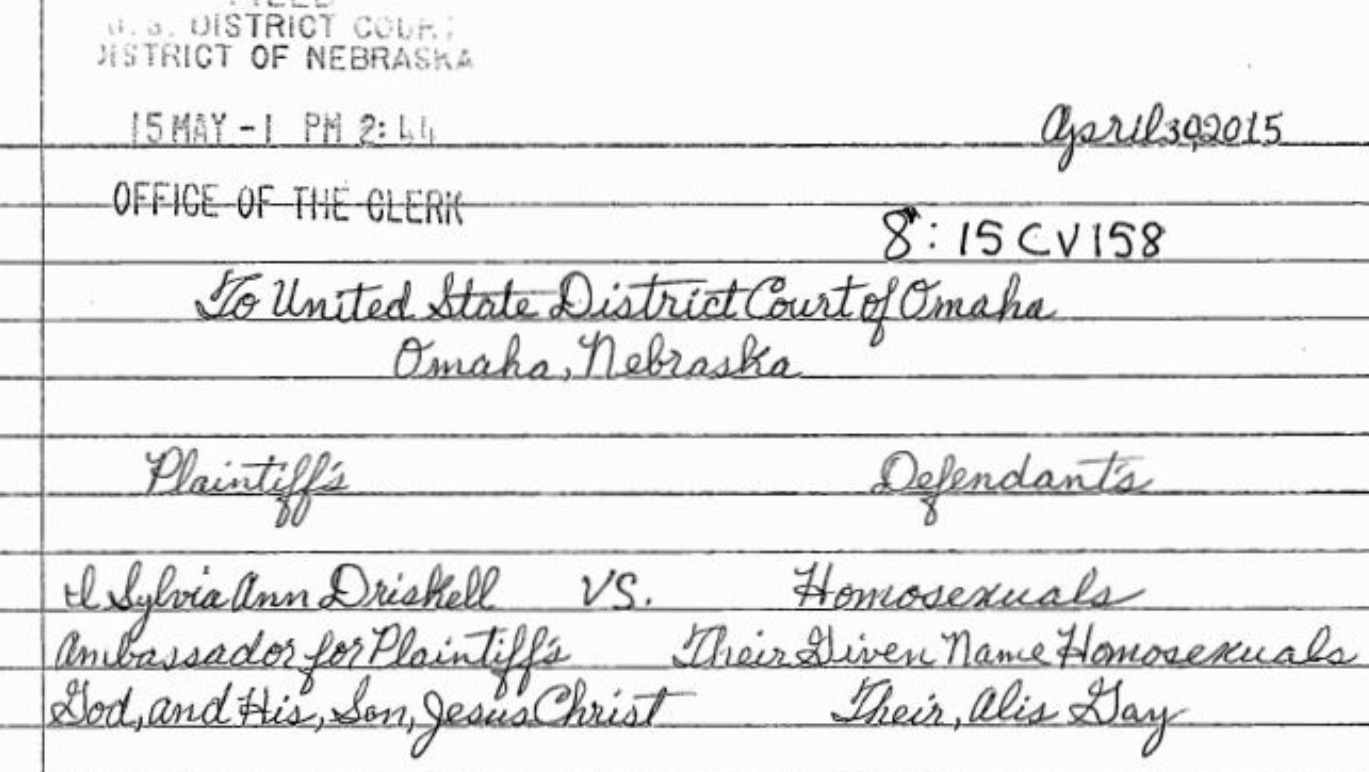 U.S. DISTRICT COURT
DISTRICT OF NEBRASKA
15 MAY -1 PM 2:44
April 30, 2015
OFFICE OF THE CLERK
8: 15 CV 158
To United State District Court of Omaha
Omaha, Nebraska
Plaintiff's Defendant's
I Sylvia Ann Driskell VS. Homosexuals
Ambassador for Plaintiff's Their Given Name Homosexuals
God, and His, Son, Jesus Christ Their, Alis Gay